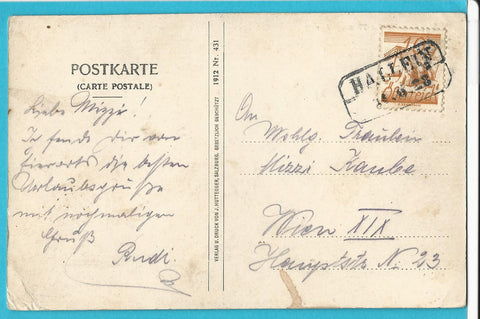 POSTKARTE
(CARTE POSTALE)
Liebe Mizzi!
Ich sende Dir von
hierorts die besten
Urlaubsgrüße
mit nochmaligen
Gruß
Rudi.
VERLAG U. DRUCK VON J. HUTTEGGER, SALZBURG. GESETZLICH GESCHÜTZT
1912 Nr. 431
HALLEIN
An
Wohlg. Fräulein
Mizzi
Wien XIX
Hauptstr N. 23